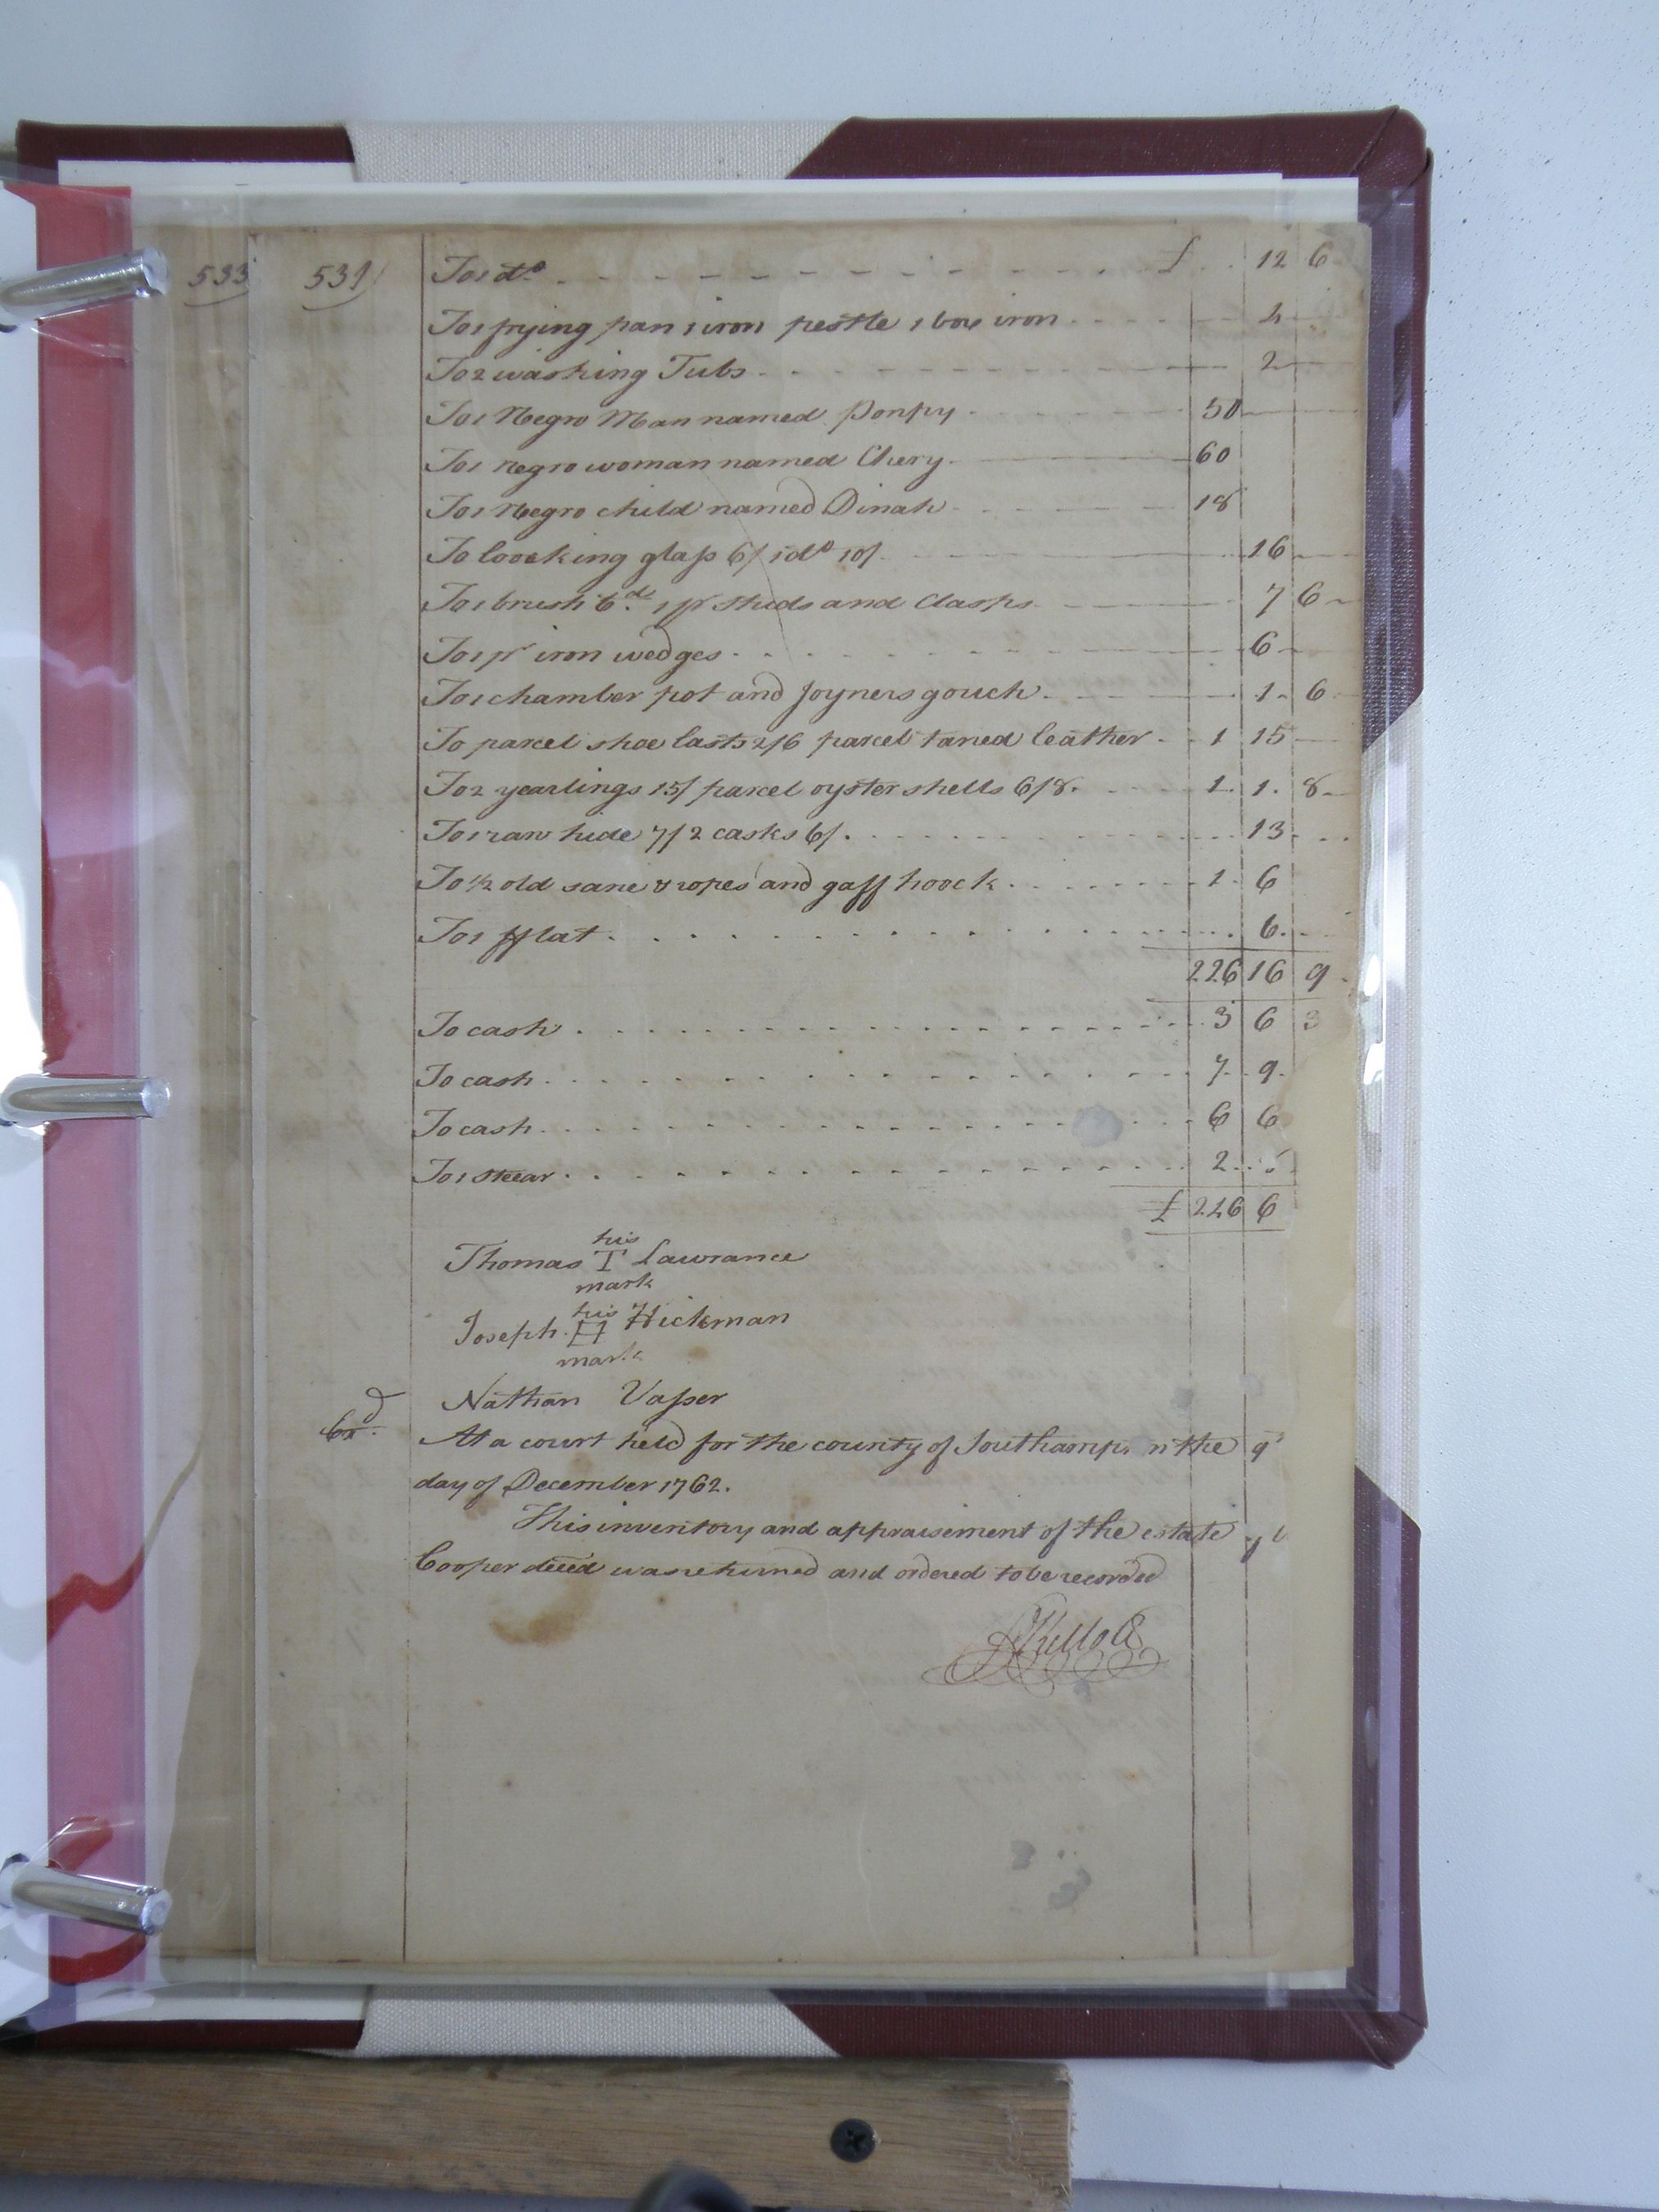 533 531 To 1 do £ 12 6
To 1 frying pan 1 iron pestle 1 box iron 4
To 2 washing Tubs 2
To 1 Negro Man named Ponpy 50
To 1 negro woman named Chery 60
To 1 Negro child named Dinah 18
To loocking glass 6/ 1 do 10/ 16
To 1 brush 6d 1 pr studs and Clasps 7 6
To 1 pr iron wedges 6
To 1 chamber pot and Joyners gouch 1 6
To parcel shoe lasts 2/6 parcel taned leather 1 15
To 2 yearlings 15/ parcel oyster shells 6/8 1 1 8
To 1 raw hide 7/ 2 casks 6/ 13
To 1/2 old sane & ropes and gaff hoock 1 6
To 1 fflat 6
226 16 9
To cash 3 6 3
To cash 7 9
To cash 6 6
To 1 Stear 2
£ 246 6
his
Thomas T Lawrance
mark
his
Joseph H Hickman
mark
Nathan Vasser
Exd
At a court held for the county of Southamp n the 9
day of December 1762.
This inventory and appraisement of the estate
Cooper deced was returned and ordered to be recorded